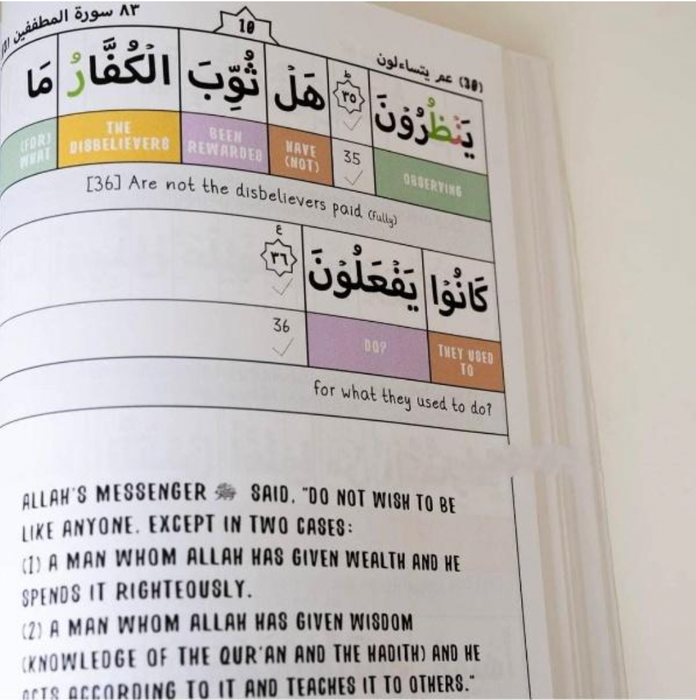 ٨٣ سورة المطففين
10
(30) عم يتساءلون
يَنْظُرُوْنَ ٣٥ هَلْ ثُوِّبَ الْكُفَّارُ مَا
OBSERVING 35 HAVE (NOT) BEEN REWARDED THE DISBELIEVERS (FOR) WHAT
[36] Are not the disbelievers paid (fully)
كَانُوْا يَفْعَلُوْنَ ٣٦
THEY USED TO DO? 36
for what they used to do?
ALLAH'S MESSENGER ﷺ SAID, "DO NOT WISH TO BE
LIKE ANYONE, EXCEPT IN TWO CASES:
(1) A MAN WHOM ALLAH HAS GIVEN WEALTH AND HE
SPENDS IT RIGHTEOUSLY.
(2) A MAN WHOM ALLAH HAS GIVEN WISDOM
(KNOWLEDGE OF THE QUR'AN AND THE HADITH) AND HE
ACTS ACCORDING TO IT AND TEACHES IT TO OTHERS."